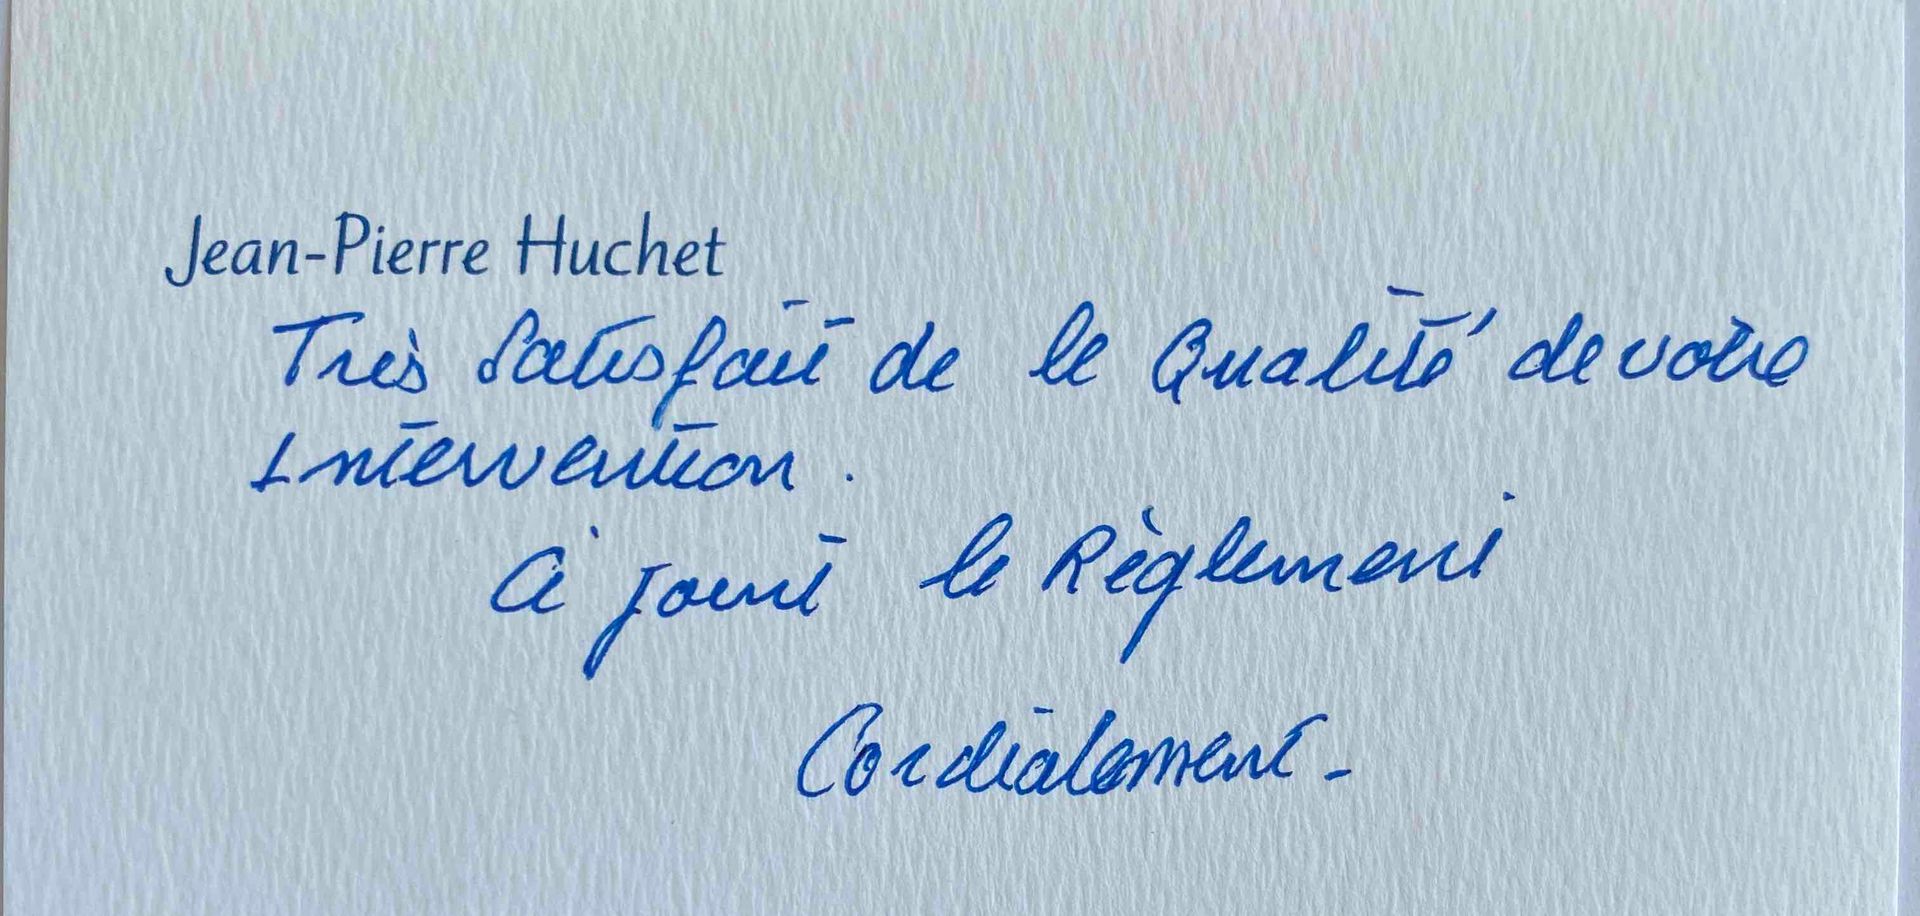 Jean-Pierre Huchet
Très Satisfait de la Qualité de votre
Intervention.
Ci joint le Règlement
Cordialement -